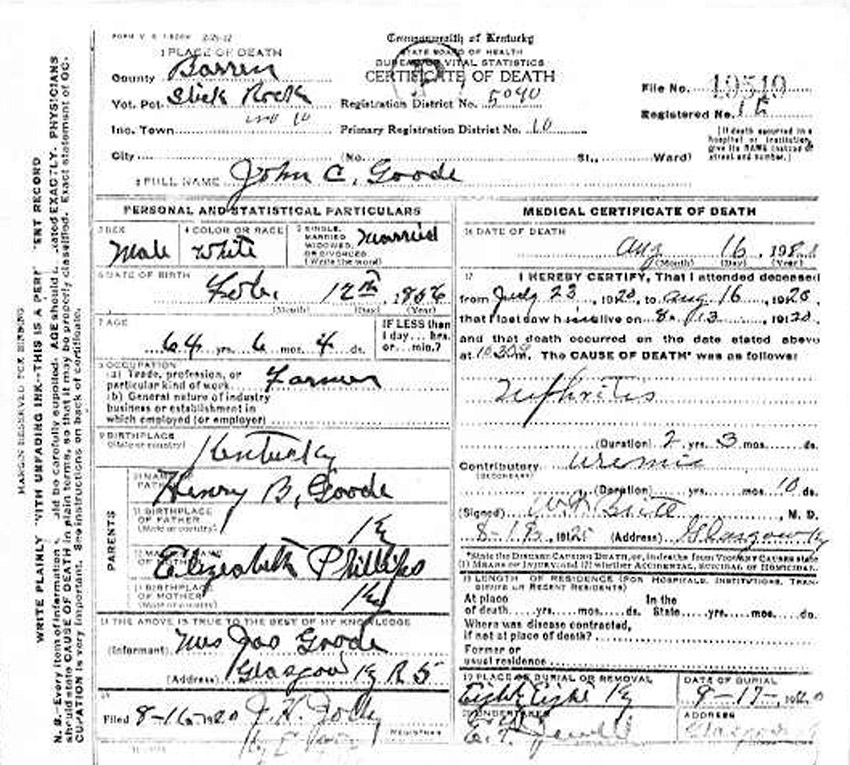 Commonwealth of Kentucky
STATE BOARD OF HEALTH
BUREAU OF VITAL STATISTICS
CERTIFICATE OF DEATH
1 PLACE OF DEATH
County Barren
Vot. Pct. Slick Rock
Inc. Town
City (No. St., Ward)
Registration District No. 5040
Primary Registration District No. 10
File No. 19519
Registered No.
[If death occurred in a
hospital or institution,
give its NAME instead of
street and number.]
2 FULL NAME John C. Goode
PERSONAL AND STATISTICAL PARTICULARS
3 SEX Male
4 COLOR OR RACE White
5 SINGLE, MARRIED, WIDOWED, OR DIVORCED (Write the word) Married
6 DATE OF BIRTH Feb. 12th 1856
(Month) (Day) (Year)
7 AGE 64 yrs. 6 mos. 4 ds.
IF LESS than
1 day... hrs.
or... min.?
8 OCCUPATION
(a) Trade, profession, or
particular kind of work Farmer
(b) General nature of industry
business or establishment in
which employed (or employer)
9 BIRTHPLACE
(State or country) Kentucky
PARENTS
10 NAME OF FATHER Henry B. Goode
11 BIRTHPLACE
OF FATHER
(State or country) Ky
12 MAIDEN NAME OF MOTHER Elizabeth Phillips
13 BIRTHPLACE
OF MOTHER
(State or country) Ky
14 THE ABOVE IS TRUE TO THE BEST OF MY KNOWLEDGE
(Informant) Mrs Jao Goode
(Address) Glasgow Ky R 5
15
Filed 8-16-1920 J. H.
REGISTRAR
MEDICAL CERTIFICATE OF DEATH
16 DATE OF DEATH
Aug 16
(Month) (Day) (Year)
17 I HEREBY CERTIFY, That I attended deceased
from July 23, 1920, to Aug 16, 1920,
that I last saw him alive on 8-13, 1920,
and that death occurred on the date stated above
at The CAUSE OF DEATH* was as follows:
Nephritis
(Duration) 2 yrs. 3 mos. ds.
Contributory Uremic
(SECONDARY)
(Duration) yrs. mos. 10 ds.
(Signed) M. D.
(Address) Glasgow Ky
*State the DISEASE CAUSING DEATH, or, in deaths from VIOLENT CAUSES state
(1) MEANS OF INJURY; and (2) whether ACCIDENTAL, SUICIDAL OR HOMICIDAL.
18 LENGTH OF RESIDENCE (FOR HOSPITALS, INSTITUTIONS, TRANSIENTS OR RECENT RESIDENTS)
At place
of death yrs. mos. ds.
In the
State yrs. mos. ds.
Where was disease contracted,
if not at place of death?
Former or
usual residence
19 PLACE OF BURIAL OR REMOVAL
Eighty Eight Ky
DATE OF BURIAL
8-17-1920
20 UNDERTAKER
Jewell
ADDRESS
Glasgow
MARGIN RESERVED FOR BINDING
WRITE PLAINLY WITH UNFADING INK--THIS IS A PERMANENT RECORD
N. B.--Every item of information should be carefully supplied. AGE should be stated EXACTLY. PHYSICIANS
should state CAUSE OF DEATH in plain terms, so that it may be properly classified. Exact statement of OC-
CUPATION is very important. See instructions on back of certificate.